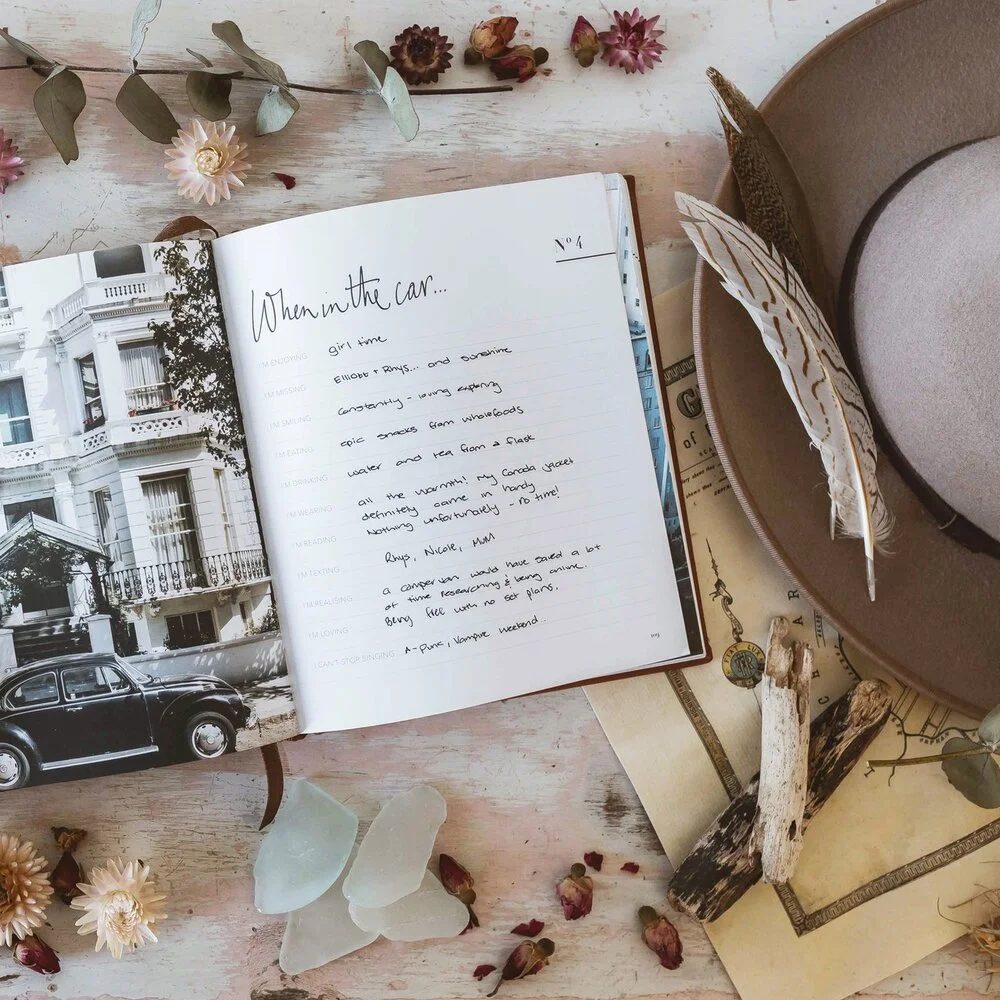 Nº 4
When in the car...
I'M ENJOYING girl time
I'M MISSING Elliott + Rhys... and sunshine
I'M SMILING constantly - loving exploring
I'M EATING epic snacks from wholefoods
I'M DRINKING water and tea from a flask
I'M WEARING all the warmth! My Canada jacket
definitely came in handy
I'M READING Nothing unfortunately - no time!
I'M TEXTING Rhys, Nicole, Mum
I'M REALISING a campervan would have saved a lot
of time researching & being online.
I'M LOVING Being free with no set plans.
I CAN'T STOP SINGING A-Punk, Vampire Weekend..
of
PLAY LUK